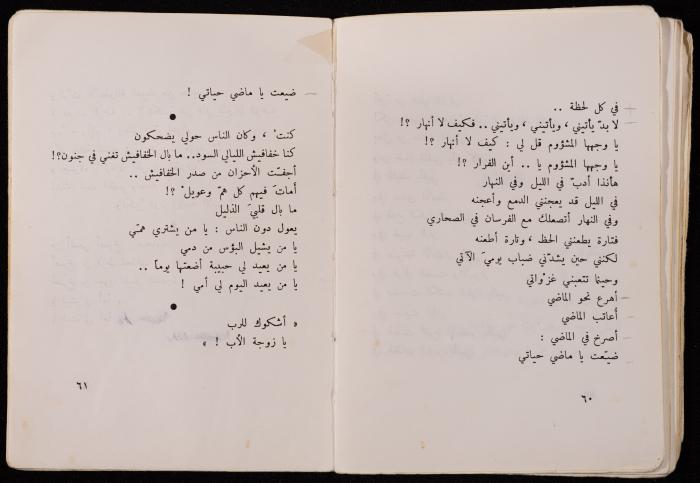 في كل لحظة ..
لا بدّ يأتيني ، ويأتيني ، ويأتيني .. فكيف لا أنهار ?!
يا وجهها المشؤوم قل لي : كيف لا أنهار ?!
يا وجهها المشؤوم يا .. أين الفرار ?!
هأنذا أدبّ في الليل وفي النهار
في الليل قد يعجنني الدمع وأعجنه
وفي النهار أتصعلك مع الفرسان في الصحاري
فتارة يطعنني الحظ ، وتارة أطعنه
لكنني حين يشدّني ضباب يوميَ الآتي
وحينما تتعبني غزْواتي
أهرع نحو الماضي
أعاتب الماضي
أصرخ في الماضي :
ضيّعت يا ماضي حياتي
٦٠
ضيعت يا ماضي حياتي !
●
كنتُ ، وكان الناس حولي يضحكون
كنا خفافيش الليالي السود.. ما بال الخفافيش تغني في جنون؟!
أجفّت الأحزان من صدر الخفافيش ..
أماتَ فيهم كل همّ وعويلْ ?!
ما بال قلبيَ الذليل
يعول دون الناس : يا من يشتري همّي
يا من يشيل البؤس من دمي
يا من يعيد لي حبيبة أضعتها يوماً ..
يا من يعيد اليوم لي أمي !
●
« أشكوك للرب
يا زوجة الأب ! »
٦١